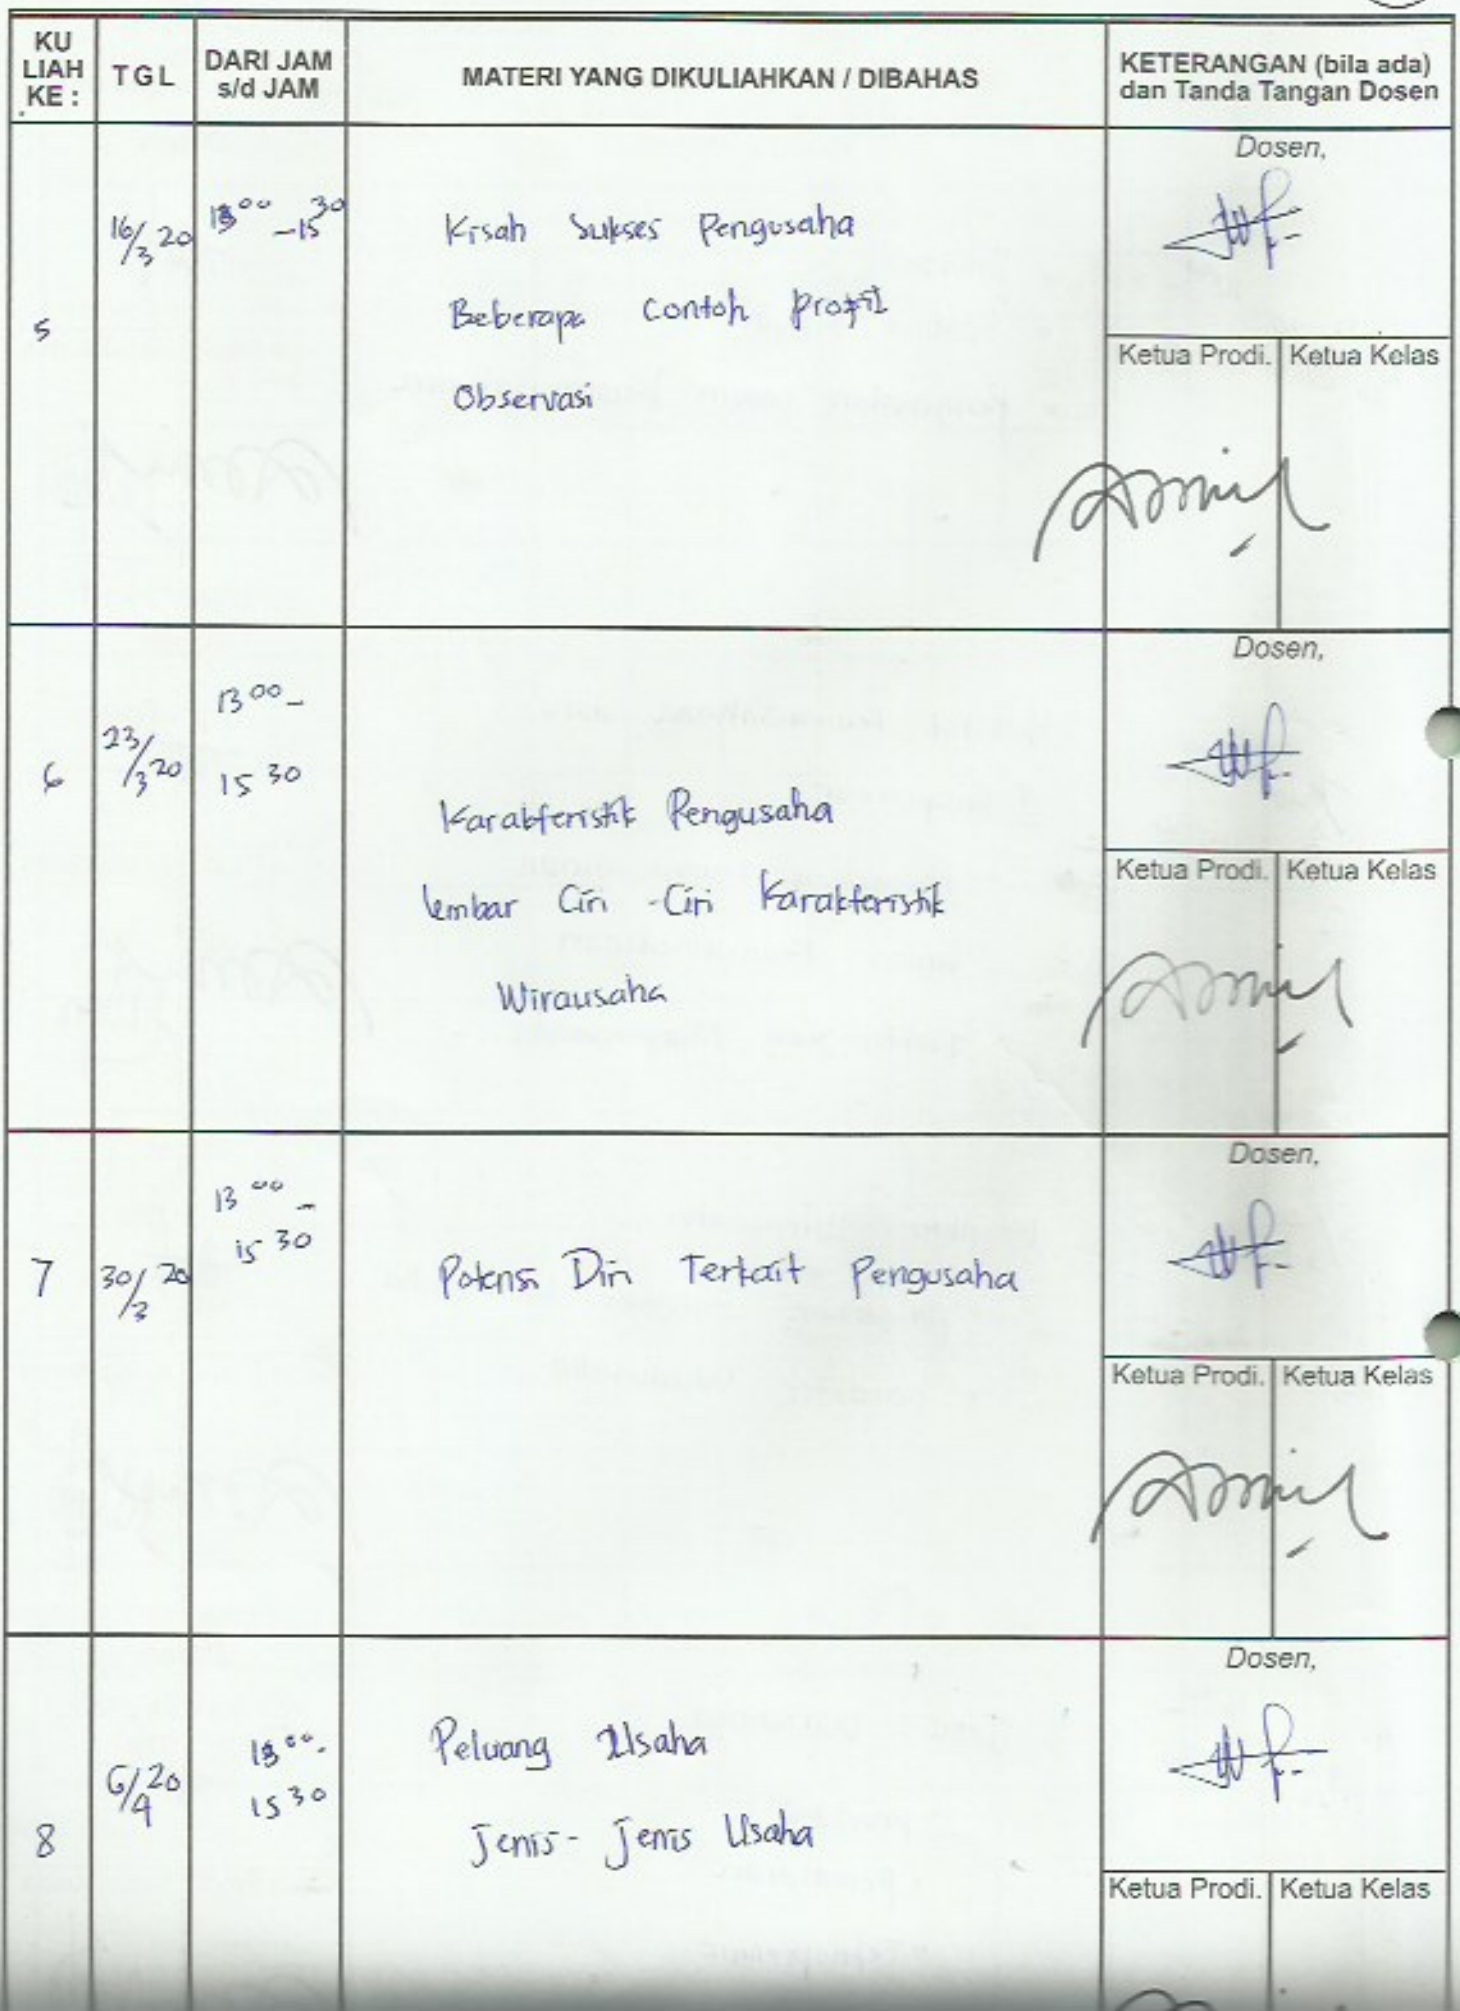 KU LIAH KE :
TGL
DARI JAM s/d JAM
MATERI YANG DIKULIAHKAN / DIBAHAS
KETERANGAN (bila ada) dan Tanda Tangan Dosen
5
16/3 20
13 00 - 15 30
Kisah Sukses Pengusaha
Beberapa Contoh Profil
Observasi
Dosen,
Ketua Prodi.
Ketua Kelas
6
23/3 20
13 00 -
15 30
Karakteristik Pengusaha
lembar Ciri - Ciri Karakteristik
Wirausaha
Dosen,
Ketua Prodi.
Ketua Kelas
7
30/3 20
13 00 -
15 30
Potensi Diri Terkait Pengusaha
Dosen,
Ketua Prodi.
Ketua Kelas
8
6/4 20
13 00 -
15 30
Peluang Usaha
Jenis - Jenis Usaha
Dosen,
Ketua Prodi.
Ketua Kelas